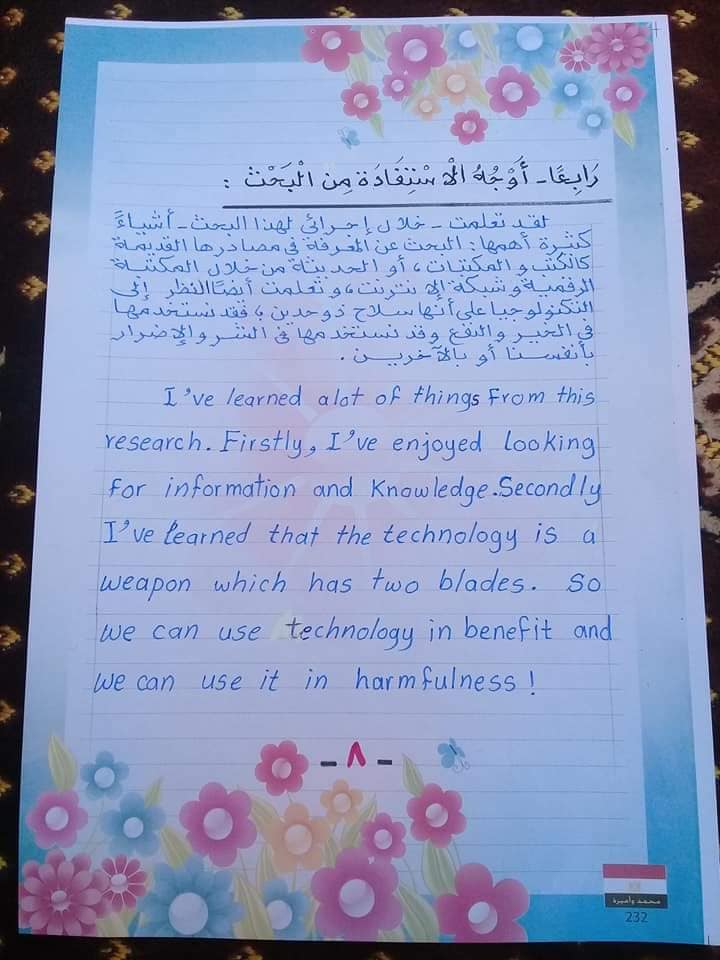 رَابِعًا - أَوْجُهُ الْاسْتِفَادَةِ مِنَ الْبَحْثِ :
لقد تعلمت - خلال إجرائي لهذا البحث - أشياءً
كثيرة أهمها : البحث عن المعرفة في مصادرها القديمة
كالكتب و المكتبات ، أو الحديثة من خلال المكتبة
الرقمية و شبكة الإنترنت ، و تعلمت أيضًا النظر إلى
التكنولوجيا على أنها سلاح ذو حدين ، فقد نستخدمها
في الخير والنفع وقد نستخدمها في الشر و الإضرار
بأنفسنا أو بالآخرين .
I've learned alot of things From this
research. Firstly, I've enjoyed looking
for information and Knowledge. Secondly
I've learned that the technology is a
weapon which has two blades. So
we can use technology in benefit and
we can use it in harmfulness !
- ٨ -
محمد وأميرة
232